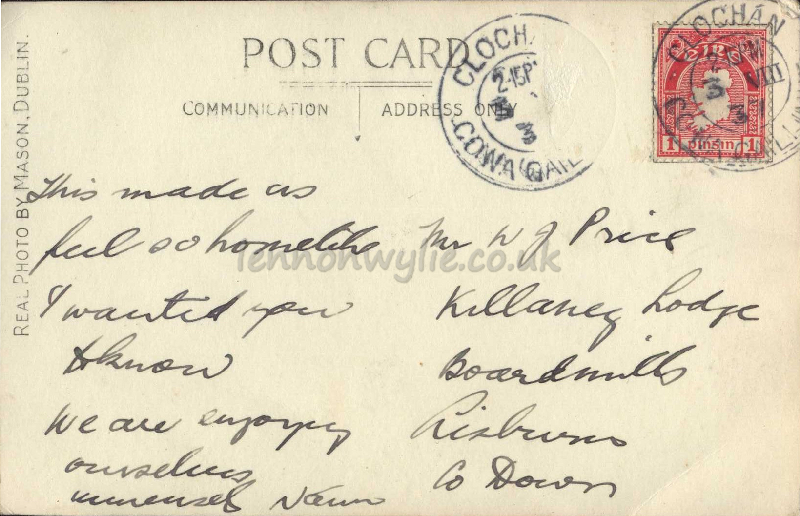 POST CARD
COMMUNICATION
ADDRESS ONLY
REAL PHOTO BY MASON, DUBLIN.
CLOCHÁN
2-15P
CLOCHAN
éIRe
1 pinGin 1
This made us
feel so homelike
I wanted you
to know
We are enjoying
ourselves
immensely
Mr W J Price
Killaney Lodge
Boardmills
Lisburn
Co Down
lennonwylie.co.uk